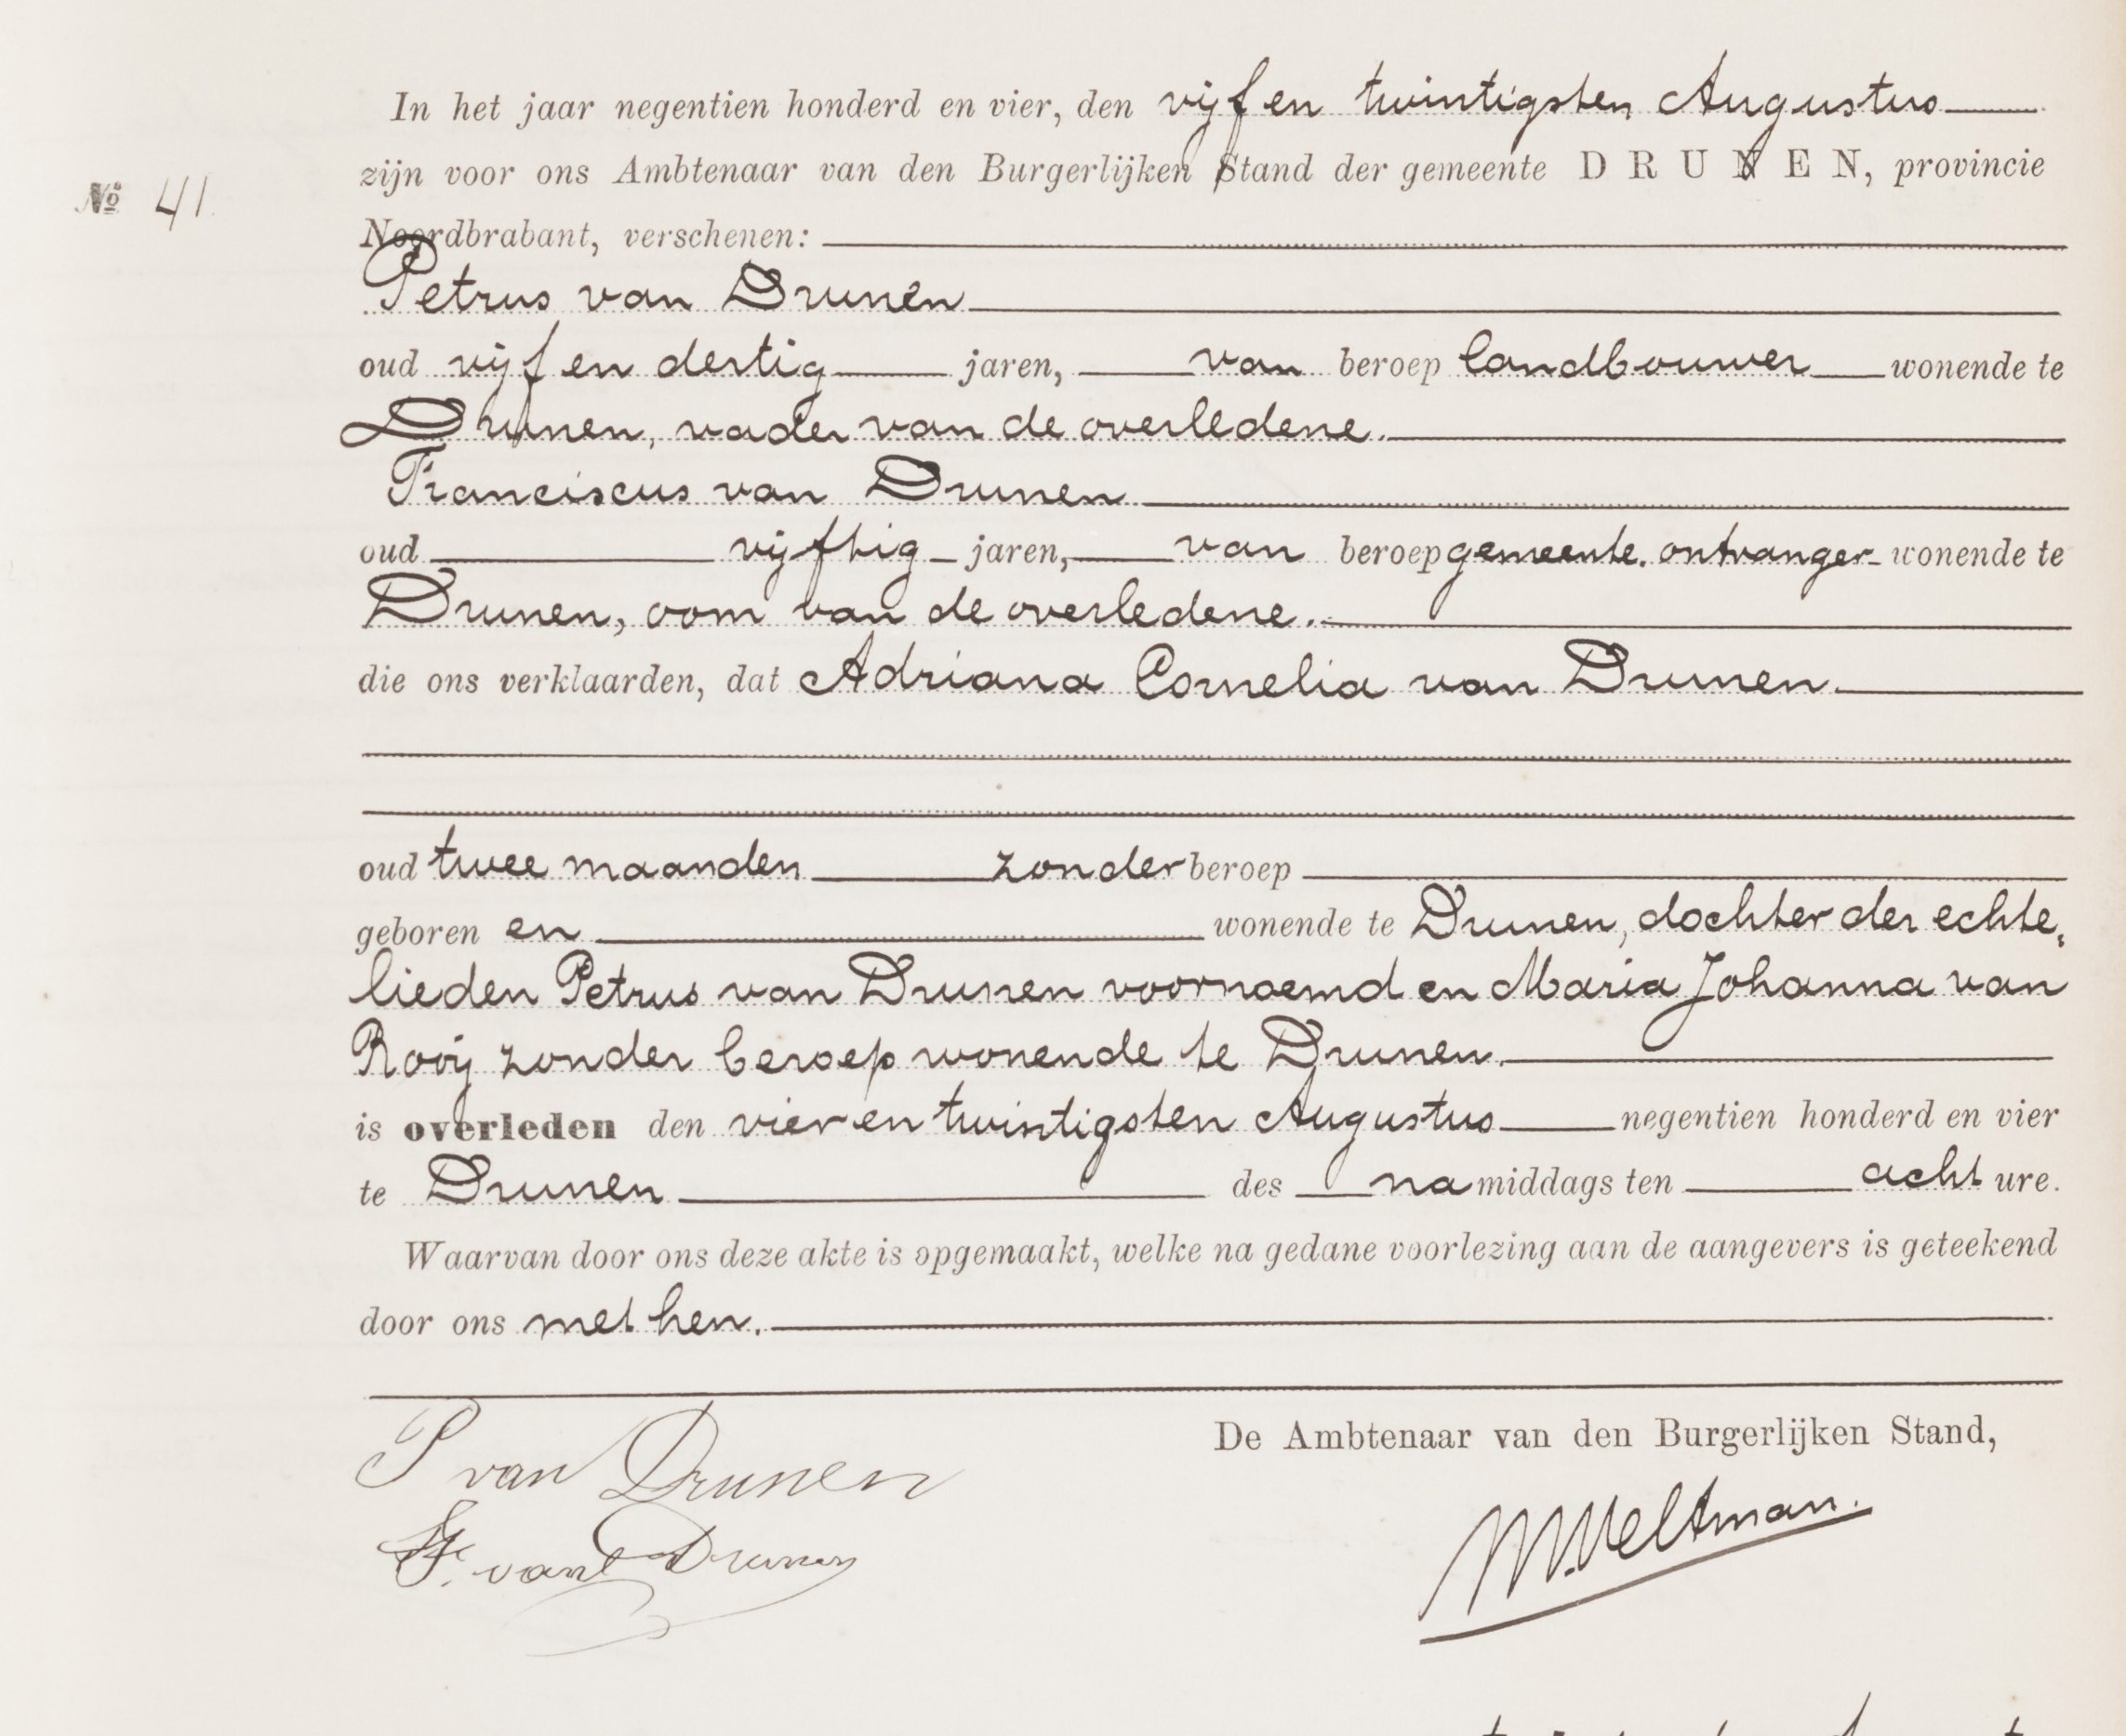 In het jaar negentien honderd en vier, den vijf en twintigsten Augustus
zijn voor ons Ambtenaar van den Burgerlijken Stand der gemeente DRUNEN, provincie
No 41
Noordbrabant, verschenen:
Petrus van Drunen
oud vijf en dertig jaren, van beroep landbouwer wonende te
Drunen, vader van de overledene.
Franciscus van Drunen
oud vijftig jaren, van beroep gemeente-ontvanger wonende te
Drunen, oom van de overledene.
die ons verklaarden, dat Adriana Cornelia van Drunen
oud twee maanden zonder beroep
geboren en wonende te Drunen, dochter der echte-
lieden Petrus van Drunen voornoemd en Maria Johanna van
Rooij zonder beroep wonende te Drunen.
is overleden den vier en twintigsten Augustus negentien honderd en vier
te Drunen des namiddags ten acht ure.
Waarvan door ons deze akte is opgemaakt, welke na gedane voorlezing aan de aangevers is geteekend
door ons met hen.
De Ambtenaar van den Burgerlijken Stand,
P van Drunen
F. van Drunen
W. Veltman.